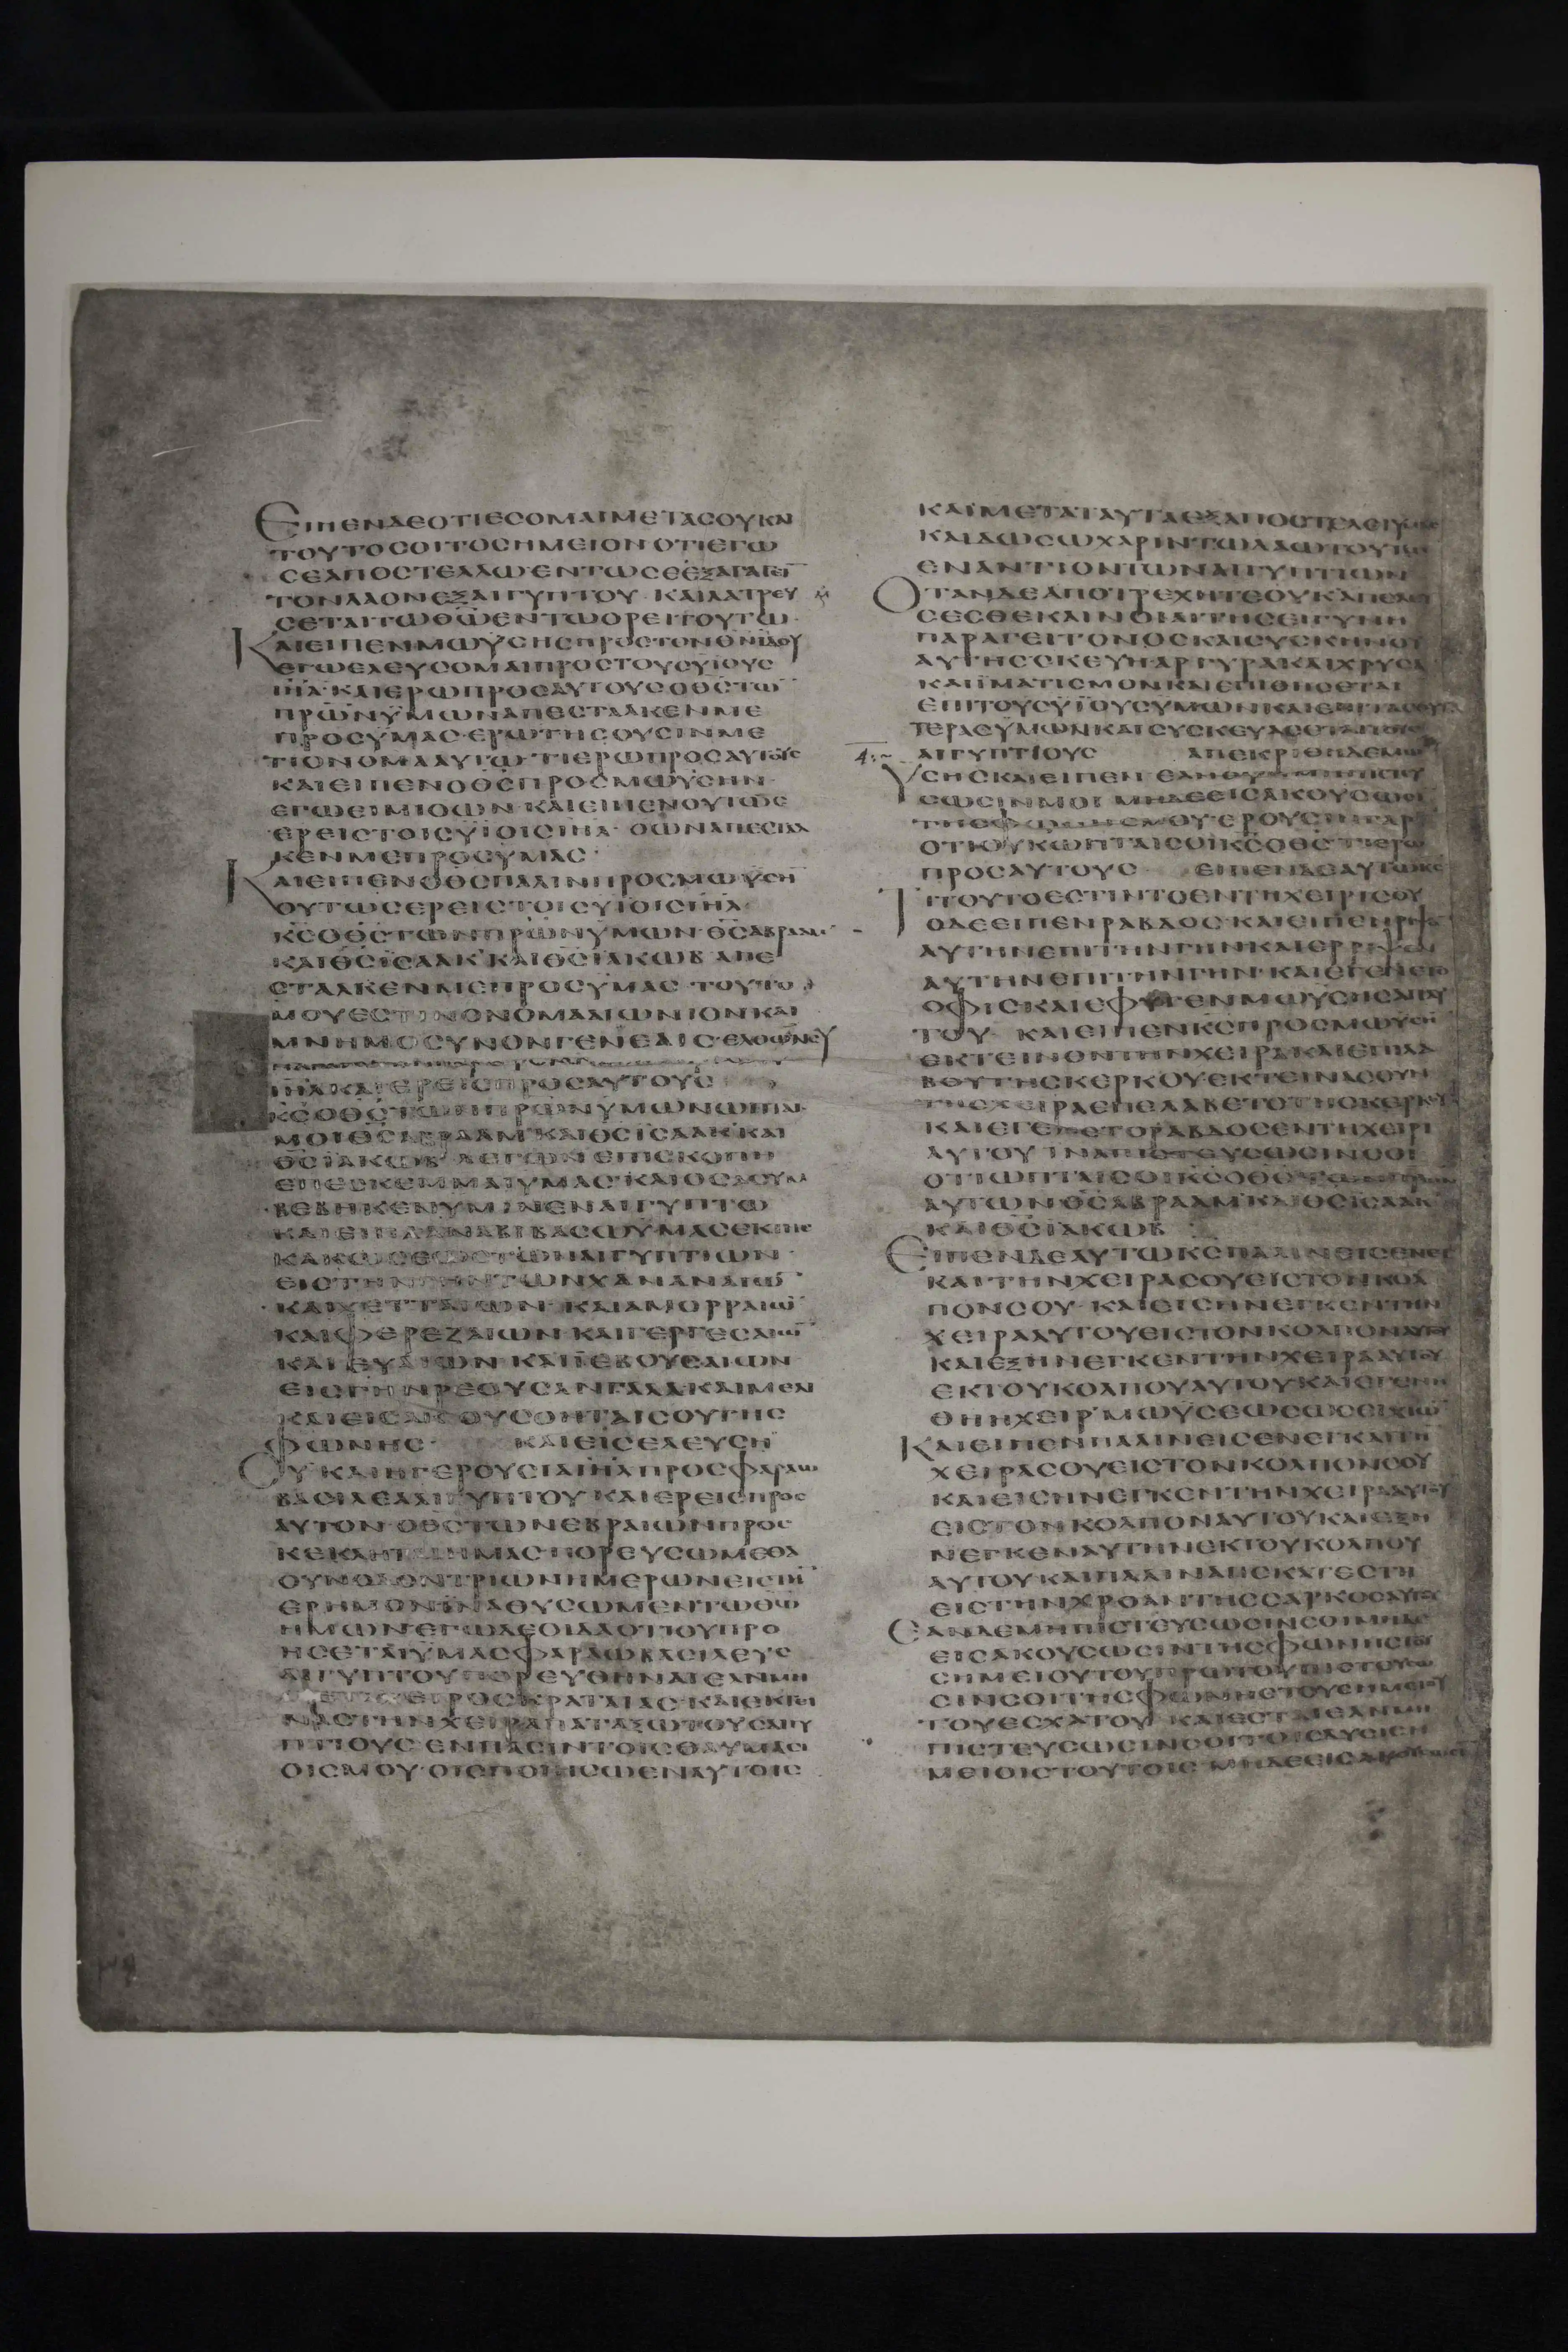 ΕΙΠΕΝΔΕΟΤΙΕϹΟΜΑΙΜΕΤΑϹΟΥΚΑΙ
ΤΟΥΤΟϹΟΙΤΟϹΗΜΕΙΟΝΟΤΙΕΓΩ
ϹΕΑΠΟϹΤΕΛΛΩ·ΕΝΤΩϹΕΕΞΑΓΑΓΕΙ̅
ΤΟΝΛΑΟΝΕΞΑΙΓΥΠΤΟΥ·ΚΑΙΛΑΤΡΕΥ
ϹΕΤΑΙΤΩΘ̅Ω̅ΕΝΤΩΟΡΕΙΤΟΥΤΩ·
ΚΑΙΕΙΠΕΝΜΩΫϹΗϹΠΡΟϹΤΟΝΘ̅Ν̅ΙΔΟΥ
ΕΓΩΕΛΕΥϹΟΜΑΙΠΡΟϹΤΟΥϹΥΪΟΥϹ
Ι̅Η̅Λ̅·ΚΑΙΕΡΩΠΡΟϹΑΥΤΟΥϹΟΘ̅Ϲ̅ΤΩ̅
Π̅Ρ̅Ω̅Ν̅ΫΜΩΝΑΠΕϹΤΑΛΚΕΝΜΕ
ΠΡΟϹΫΜΑϹ·ΕΡΩΤΗϹΟΥϹΙΝΜΕ
ΤΙΟΝΟΜΑΑΥΤΩ·ΤΙΕΡΩΠΡΟϹΑΥΤΟΥϹ
ΚΑΙΕΙΠΕΝΟΘ̅Ϲ̅ΠΡΟϹΜΩΫϹΗΝ·
ΕΓΩΕΙΜΙΟΩΝ·ΚΑΙΕΙΠΕΝΟΥΤΩϹ
ΕΡΕΙϹΤΟΙϹΥΪΟΙϹΙ̅Η̅Λ̅·ΟΩΝΑΠΕϹΤΑΛ
ΚΕΝΜΕΠΡΟϹΫΜΑϹ·
ΚΑΙΕΙΠΕΝΟΘ̅Ϲ̅ΠΑΛΙΝΠΡΟϹΜΩΫϹΗ̅
ΟΥΤΩϹΕΡΕΙϹΤΟΙϹΥΪΟΙϹΙ̅Η̅Λ̅·
Κ̅Ϲ̅ΟΘ̅Ϲ̅ΤΩΝΠ̅Ρ̅Ω̅Ν̅ΫΜΩΝ·Θ̅Ϲ̅ΑΒΡΑΑΜ
ΚΑΙΘ̅Ϲ̅ΪϹΑΑΚ'ΚΑΙΘ̅Ϲ̅ΪΑΚΩΒ'ΑΠΕ
ϹΤΑΛΚΕΝΜΕΠΡΟϹΫΜΑϹ·ΤΟΥΤΟ
ΜΟΥΕϹΤΙΝΟΝΟΜΑΑΙΩΝΙΟΝΚΑΙ
ΜΝΗΜΟϹΥΝΟΝΓΕΝΕΑΙϹ·ΕΛΘΩΝϹΥ
Ι̅Η̅Λ̅ΚΑΙΕΡΕΙϹΠΡΟϹΑΥΤΟΥϹ
Κ̅Ϲ̅ΟΘ̅Ϲ̅ΤΩΝΠ̅Ρ̅Ω̅Ν̅ΫΜΩΝΩΠΤΑΙ
ΜΟΙΘ̅Ϲ̅ΑΒΡΑΑΜ'ΚΑΙΘ̅Ϲ̅ΪϹΑΑΚ'ΚΑΙ
Θ̅Ϲ̅ΪΑΚΩΒ'ΛΕΓΩΝΕΠΙϹΚΟΠΗ
ΕΠΕϹΚΕΜΜΑΙΫΜΑϹ·ΚΑΙΟϹΑϹΥΜ
ΒΕΒΗΚΕΝΫΜΙΝΕΝΑΙΓΥΠΤΩ
ΚΑΙΕΙΠΑΑΝΑΒΙΒΑϹΩΫΜΑϹΕΚΤΗϹ
ΚΑΚΩϹΕΩϹΤΩΝΑΙΓΥΠΤΙΩΝ·
ΕΙϹΤΗΝΓΗΝΤΩΝΧΑΝΑΝΑΙΩ̅
ΚΑΙΧΕΤΤΑΙΩΝ·ΚΑΙΑΜΟΡΡΑΙΩ̅
ΚΑΙΦΕΡΕΖΑΙΩΝ·ΚΑΙΓΕΡΓΕϹΑΙΩ̅
ΚΑΙΕΥΑΙΩΝ·ΚΑΙΪΕΒΟΥϹΑΙΩΝ
ΕΙϹΓΗΝΡΕΟΥϹΑΝΓΑΛΑΚΑΙΜΕΛΙ
ΚΑΙΕΙϹΑΚΟΥϹΟΝΤΑΙϹΟΥΤΗϹ
ΦΩΝΗϹ· ΚΑΙΕΙϹΕΛΕΥϹΗ
ϹΥΚΑΙΗΓΕΡΟΥϹΙΑΙ̅Η̅Λ̅ΠΡΟϹΦΑΡΑΩ
ΒΑϹΙΛΕΑΑΙΓΥΠΤΟΥ·ΚΑΙΕΡΕΙϹΠΡΟϹ
ΑΥΤΟΝ·ΟΘ̅Ϲ̅ΤΩΝΕΒΡΑΙΩΝΠΡΟϹ
ΚΕΚΛΗΤΑΙΗΜΑϹ·ΠΟΡΕΥϹΩΜΕΘΑ
ΟΥΝΟΔΟΝΤΡΙΩΝΗΜΕΡΩΝΕΙϹΤΗ̅
ΕΡΗΜΟΝΪΝΑΘΥϹΩΜΕΝΤΩΘ̅Ω̅
ΗΜΩΝ·ΕΓΩΔΕΟΙΔΑΟΤΙΟΥΠΡΟ
ΗϹΕΤΑΙΫΜΑϹΦΑΡΑΩΒΑϹΙΛΕΥϹ
ΑΙΓΥΠΤΟΥΠΟΡΕΥΘΗΝΑΙ·ΕΑΝΜΗ
ΜΕΤΑΧΕΙΡΟϹΚΡΑΤΑΙΑϹ·ΚΑΙΕΚΤΙ
ΝΑϹΤΗΝΧΕΙΡΑΠΑΤΑΞΩΤΟΥϹΑΙΓΥ
ΠΤΙΟΥϹ·ΕΝΠΑϹΙΝΤΟΙϹΘΑΥΜΑϹΙ
ΟΙϹΜΟΥ·ΟΙϹΠΟΙΗϹΩΕΝΑΥΤΟΙϹ
ΚΑΙΜΕΤΑΤΑΥΤΑΕΞΑΠΟϹΤΕΛΕΙΫΜΑϹ
ΚΑΙΔΩϹΩΧΑΡΙΝΤΩΛΑΩΤΟΥΤΩ
ΕΝΑΝΤΙΟΝΤΩΝΑΙΓΥΠΤΙΩΝ
ΟΤΑΝΔΕΑΠΟΤΡΕΧΗΤΕΟΥΚΑΠΕΛΕΥ
ϹΕϹΘΕΚΑΙΝΟΙΑΙΤΗϹΕΙΓΥΝΗ
ΠΑΡΑΓΕΙΤΟΝΟϹΚΑΙϹΥϹΚΗΝΟΥ
ΑΥΤΗϹϹΚΕΥΗΑΡΓΥΡΑΚΑΙΧΡΥϹΑ
ΚΑΙΪΜΑΤΙϹΜΟΝΚΑΙΕΠΙΘΗϹΕΤΑΙ
ΕΠΙΤΟΥϹΫΪΟΥϹΫΜΩΝΚΑΙΕΠΙΤΑϹΘΥΓΑ
ΤΕΡΑϹΫΜΩΝΚΑΙϹΥϹΚΕΥΑϹΕΤΑΙΤΟΥϹ
4:~ ΑΙΓΥΠΤΙΟΥϹ ΑΠΕΚΡΙΘΗΔΕΜΩ
ΫϹΗϹΚΑΙΕΙΠΕΝ·ΕΑΝΟΥΝΜΗΠΙϹΤΕΥ
ϹΩϹΙΝΜΟΙ ΜΗΔΕΕΙϹΑΚΟΥϹΩϹΙ
ΤΗϹΦΩΝΗϹΜΟΥ·ΕΡΟΥϹΙΝΓΑΡ
ΟΤΙΟΥΚΩΠΤΑΙϹΟΙΚ̅Ϲ̅ΟΘ̅Ϲ̅·ΤΙΕΡΩ
ΠΡΟϹΑΥΤΟΥϹ ΕΙΠΕΝΔΕΑΥΤΩΚ̅Ϲ̅
ΤΙΤΟΥΤΟΕϹΤΙΝΤΟΕΝΤΗΧΕΙΡΙϹΟΥ
ΟΔΕΕΙΠΕΝΡΑΒΔΟϹ·ΚΑΙΕΙΠΕΝΡΙΨΟΝ
ΑΥΤΗΝΕΠΙΤΗΝΓΗΝΚΑΙΕΡΡΙΨΕΝ
ΑΥΤΗΝΕΠΙΤΗΝΓΗΝ·ΚΑΙΕΓΕΝΕΤΟ
ΟΦΙϹΚΑΙΕΦΥΓΕΝΜΩΫϹΗϹΑΠΑΥ
ΤΟΥ ΚΑΙΕΙΠΕΝΚ̅Ϲ̅ΠΡΟϹΜΩΫϹΗ̅
ΕΚΤΕΙΝΟΝΤΗΝΧΕΙΡΑΚΑΙΕΠΙΛΑ
ΒΟΥΤΗϹΚΕΡΚΟΥΕΚΤΕΙΝΑϹΟΥΝ
ΤΗΝΧΕΙΡΑΕΠΕΛΑΒΕΤΟΤΗϹΚΕΡΚΟΥ
ΚΑΙΕΓΕΝΕΤΟΡΑΒΔΟϹΕΝΤΗΧΕΙΡΙ
ΑΥΤΟΥ·ΪΝΑΠΙϹΤΕΥϹΩϹΙΝϹΟΙ
ΟΤΙΩΠΤΑΙϹΟΙΚ̅Ϲ̅ΟΘ̅Ϲ̅
ΑΥΤΩΝΘ̅Ϲ̅ΑΒΡΑΑΜ'ΚΑΙΘ̅Ϲ̅ΪϹΑΑΚ'
ΚΑΙΘ̅Ϲ̅ΪΑΚΩΒ
ΕΙΠΕΝΔΕΑΥΤΩΚ̅Ϲ̅ΠΑΛΙΝΕΙϹΕΝΕΓ
ΚΑΙΤΗΝΧΕΙΡΑϹΟΥΕΙϹΤΟΝΚΟΛ
ΠΟΝϹΟΥ·ΚΑΙΕΙϹΗΝΕΓΚΕΝΤΗΝ
ΧΕΙΡΑΑΥΤΟΥΕΙϹΤΟΝΚΟΛΠΟΝΑΥΤΟΥ
ΚΑΙΕΞΗΝΕΓΚΕΝΤΗΝΧΕΙΡΑΑΥΤΟΥ
ΕΚΤΟΥΚΟΛΠΟΥΑΥΤΟΥΚΑΙΕΓΕΝΗ
ΘΗΗΧΕΙΡ'ΜΩΫϹΕΩϹΩϹΕΙΧΙΩ̅
ΚΑΙΕΙΠΕΝΠΑΛΙΝΕΙϹΕΝΕΓΚΑΙΤΗ̅
ΧΕΙΡΑϹΟΥΕΙϹΤΟΝΚΟΛΠΟΝϹΟΥ
ΚΑΙΕΙϹΗΝΕΓΚΕΝΤΗΝΧΕΙΡΑΑΥΤΟΥ
ΕΙϹΤΟΝΚΟΛΠΟΝΑΥΤΟΥΚΑΙΕΞΗ
ΝΕΓΚΕΝΑΥΤΗΝΕΚΤΟΥΚΟΛΠΟΥ
ΑΥΤΟΥΚΑΙΠΑΛΙΝΑΠΕΚΑΤΕϹΤΗ
ΕΙϹΤΗΝΧΡΟΑΝΤΗϹϹΑΡΚΟϹΑΥΤΟΥ
ΕΑΝΔΕΜΗΠΙϹΤΕΥϹΩϹΙΝϹΟΙΜΗΔΕ
ΕΙϹΑΚΟΥϹΩϹΙΝΤΗϹΦΩΝΗϹΤΟΥ
ϹΗΜΕΙΟΥΤΟΥΠΡΩΤΟΥΠΙϹΤΕΥϹΩ
ϹΙΝϹΟΙΤΗϹΦΩΝΗϹΤΟΥϹΗΜΕΙΟΥ
ΤΟΥΕϹΧΑΤΟΥ·ΚΑΙΕϹΤΑΙΕΑΝΜΗ
ΠΙϹΤΕΥϹΩϹΙΝϹΟΙΤΟΙϹΔΥϹΙϹΗ
ΜΕΙΟΙϹΤΟΥΤΟΙϹ·ΜΗΔΕΕΙϹΑΚΟΥϹΩϹΙ